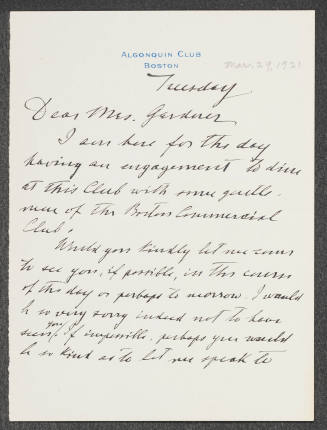 ALGONQUIN CLUB
BOSTON
Mar. 29, 1921
Tuesday
Dear Mrs. Gardner
I am here for the day
having an engagement to dine
at this Club with some gentle-
men of the Boston Commercial
Club.
Would you kindly let me come
to see you, if possible, in the course
of this day or perhaps to morrow. I would
be so very sorry indeed not to have
seen you. If impossible, perhaps you would
be so kind as to let me speak to